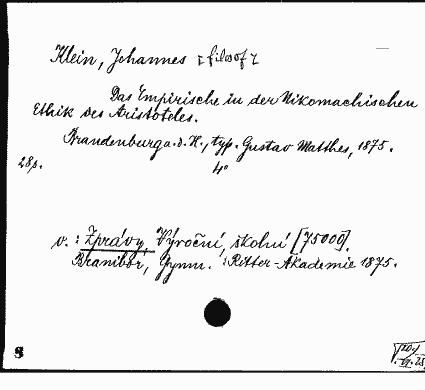 Klein, Johannes [filosof]
Das Empirische in der Nikomachischen
Ethik des Aristoteles.
Brandenburg a. d. H., typ. Gustav Matthes, 1875.
28 s.
4°
v.: Zprávy, Výroční, školní [75000].
Branibor, Gymn. : Ritter-Akademie 1875.
8